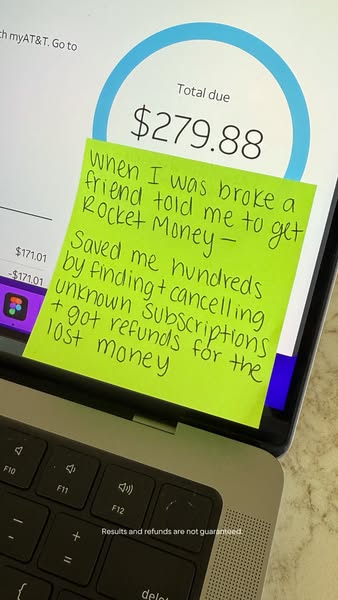 th myAT&T. Go to
Total due
$279.88
$171.01
-$171.01
When I was broke a
friend told me to get
Rocket Money—
Saved me hundreds
by finding + cancelling
unknown subscriptions
+ got refunds for the
lost money
F10
F11
F12
Results and refunds are not guaranteed.
—
-
+
=
{
delet